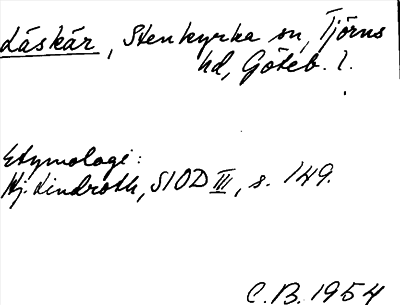 Låskär, Stenkyrka sn, Tjörns
hd, Göteb. l.
Etymologi:
Hj. Lindroth, SIOD III, s. 149.
C.B. 1954